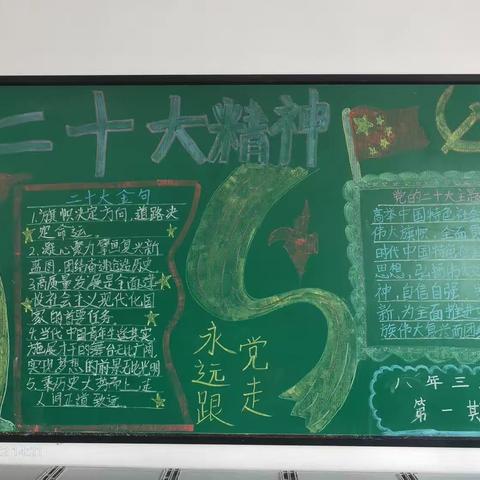 二十大精神
二十大金句
1.旗帜决定方向,道路决
定命运。
2.凝心聚力擘画复兴新
蓝图,团结奋进创造历史
3.高质量发展是全面建
设社会主义现代化国
家的首要任务
4.当代中国青年生逢其
施展才干的舞台无比广阔,
实现梦想的前景无比光明
5.乘历史大势而上,走
人间正道致远
永远跟
党走
党的二十大主
高举中国特色社会
伟大旗帜,全面贯
时代中国特色
思想,弘扬伟大
神,自信自强
新,为全面推进
族伟大复兴而团结
八年三
第一期
14:21